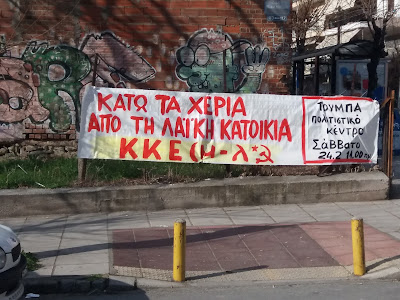 ΚΑΤΩ ΤΑ ΧΕΡΙΑ
ΑΠΟ ΤΗ ΛΑΪΚΗ ΚΑΤΟΙΚΙΑ
ΚΚΕ(μ-λ)
ΤΟΥΜΠΑ
ΠΟΛΙΤΙΣΤΙΚΟ
ΚΕΝΤΡΟ
ΣΑΒΒΑΤΟ
24.2 11.00πμ